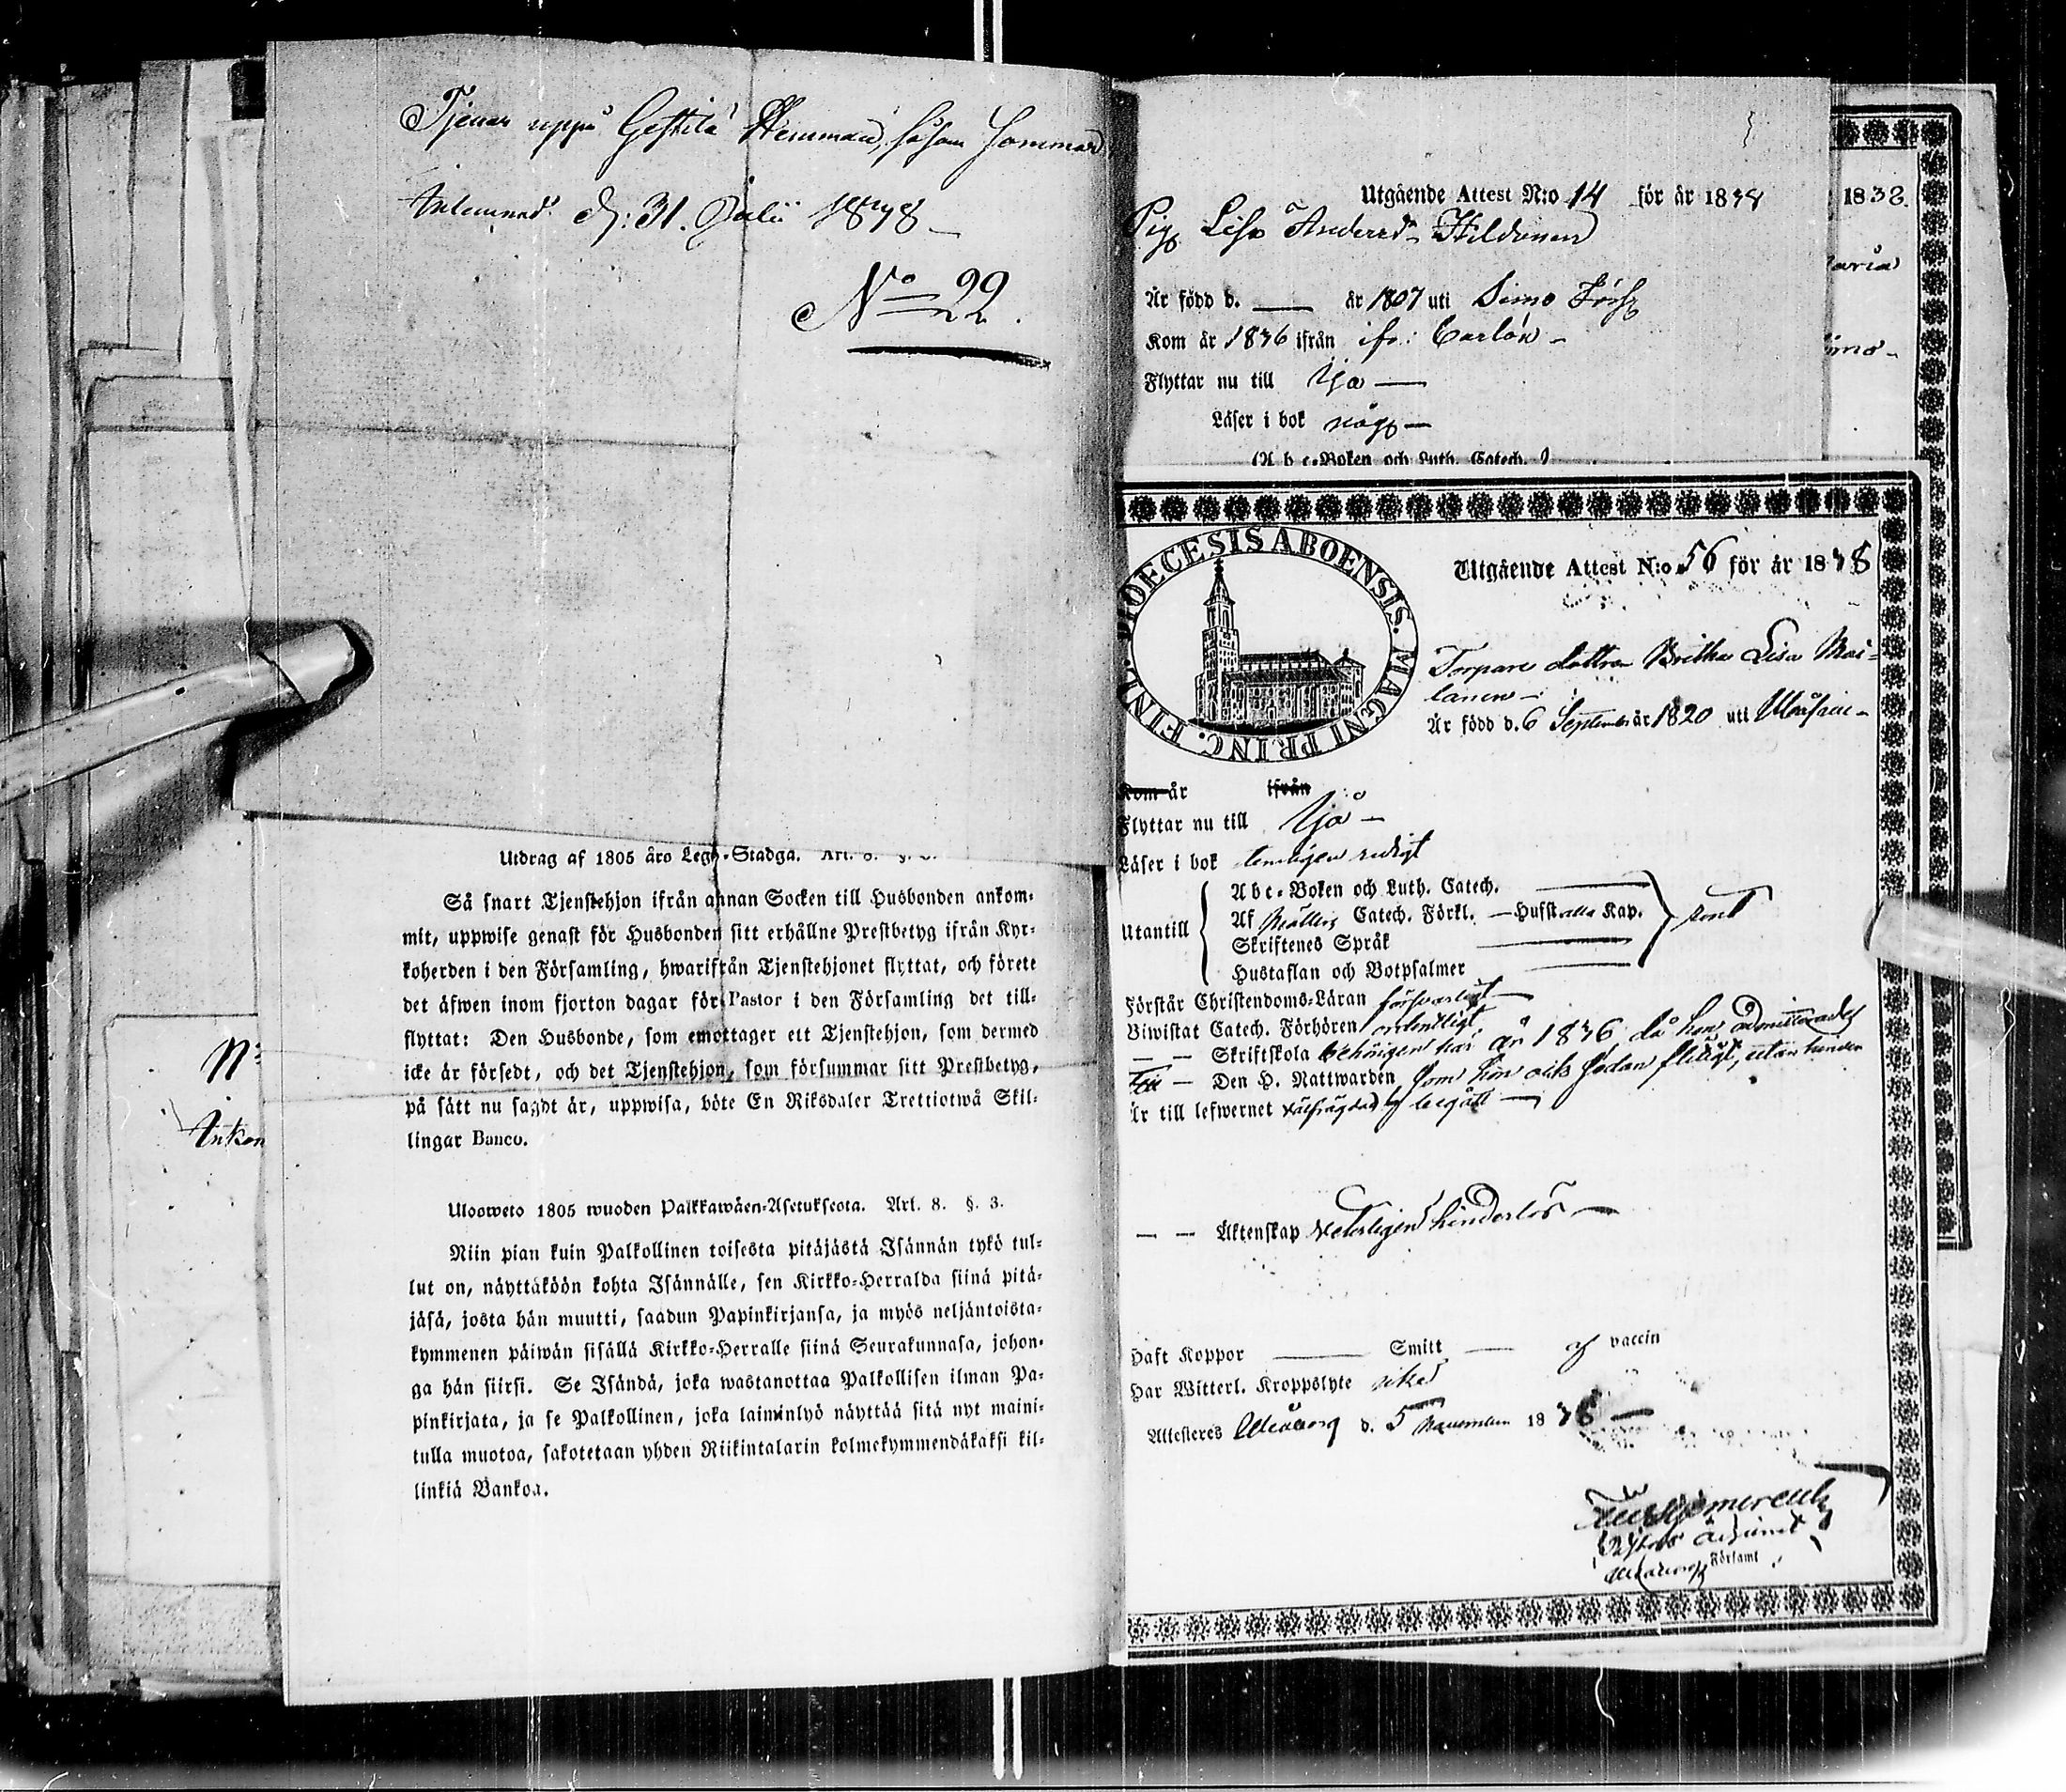 Tjenar uppå Gestilä Hemman, såsom Sommar
Inlemnad d: 31. Julii 1838
No 22.
Utdrag af 1805 års Lego-Stadga. Art. 8. §.
Så snart Tjenstehjon ifrån annan Socken till Husbonden ankom-
mit, uppwise genast för Husbonden sitt erhållne Prestbetyg ifrån Kyr-
koherden i den Församling, hwarifrån Tjenstehjonet flyttat, och förete
det äfwen inom fjorton dagar för Pastor i den Församling det till-
flyttat: Den Husbonde, som emottager ett Tjenstehjon, som dermed
icke är försedt, och det Tjenstehjon, som försummar sitt Prestbetyg,
på sätt nu sagdt är, uppwisa, böte En Riksdaler Trettiotwå Skil-
lingar Banco.
Ulosweto 1805 wuoden Palkkawäen-Asetuksesta. Art. 8. §. 3.
Niin pian kuin Palkollinen toisesta pitäjästä Isännän tykö tul-
lut on, näyttäköön kohta Isännälle, sen Kirkko-Herralda siinä pitä-
jäsä, josta hän muutti, saadun Papinkirjansa, ja myös neljäntoista-
kymmenen päiwän sisällä Kirkko-Herralle siinä Seurakunnasa, johon-
ga hän siirsi. Se Isändä, joka wastanottaa Palkollisen ilman Pa-
pinkirjata, ja se Palkollinen, joka laiminlyö näyttää sitä nyt maini-
tulla muotoa, sakotetaan yhden Riikintalarin kolmekymmendäkaksi kil-
linkiä Bankoa.
Utgående Attest N:o 14 för år 1838
Pig. Lisa Andersd:r Hildunen
Är född d. — år 1807 uti Simo
Kom år 1836 ifrån Carlön
Flyttar nu till Ijo
Läser i bok
(A b c-Boken och Luth. Catech.
1838.
FINL. DIOECESIS ABOENSIS. MAGNI PRINC.
Utgående Attest N:o 56 för år 1838
Torpare dottren Britha Lisa Moi-
lanen
Är född d. 6 September år 1820 uti
Kom år ifrån
Flyttar nu till Ijo
Läser i bok temligen redigt
Utantill
A b c-Boken och Luth. Catech.
Af Catech. Förkl. — Husst Kap.
Skriftenes Språk
Hustaflan och Botpsalmer
Förstår Christendoms-Läran försvarligt
Biwistat Catech. Förhören ordentligt
Skriftskola behörigen år 1836, då hon admitterades
till Den H. Nattwarden, som hon ock sedan flitigt, utan hinder
Är till lefwernet välfrägdad
Äktenskap veterligen hinderlös
Haft Koppor — Smitt — af vaccin
Har Witterl. Kroppslyte
Attesteras Uleåborg d. 5 November 1838
Pastors Adjunct
Församl